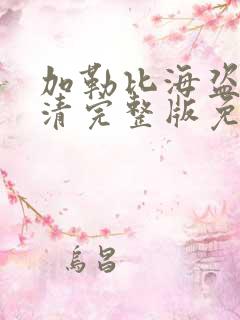 加勒比海盗
清完整版免
烏昌